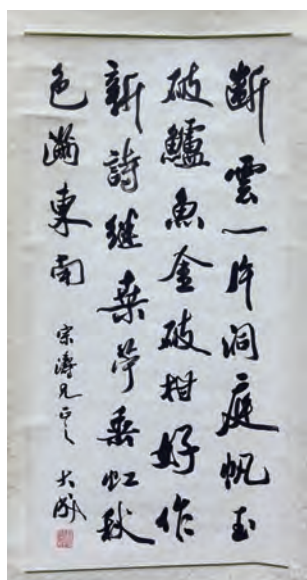 斷雲一片洞庭帆玉
破鱸魚金破柑好作
新詩继桒苧垂虹秋
色滿東南
宗濤兄正之 大成